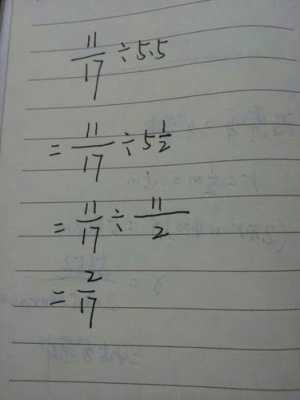 11/17 ÷ 5.5
= 11/17 ÷ 5 1/2
= 11/17 ÷ 11/2
= 2/17